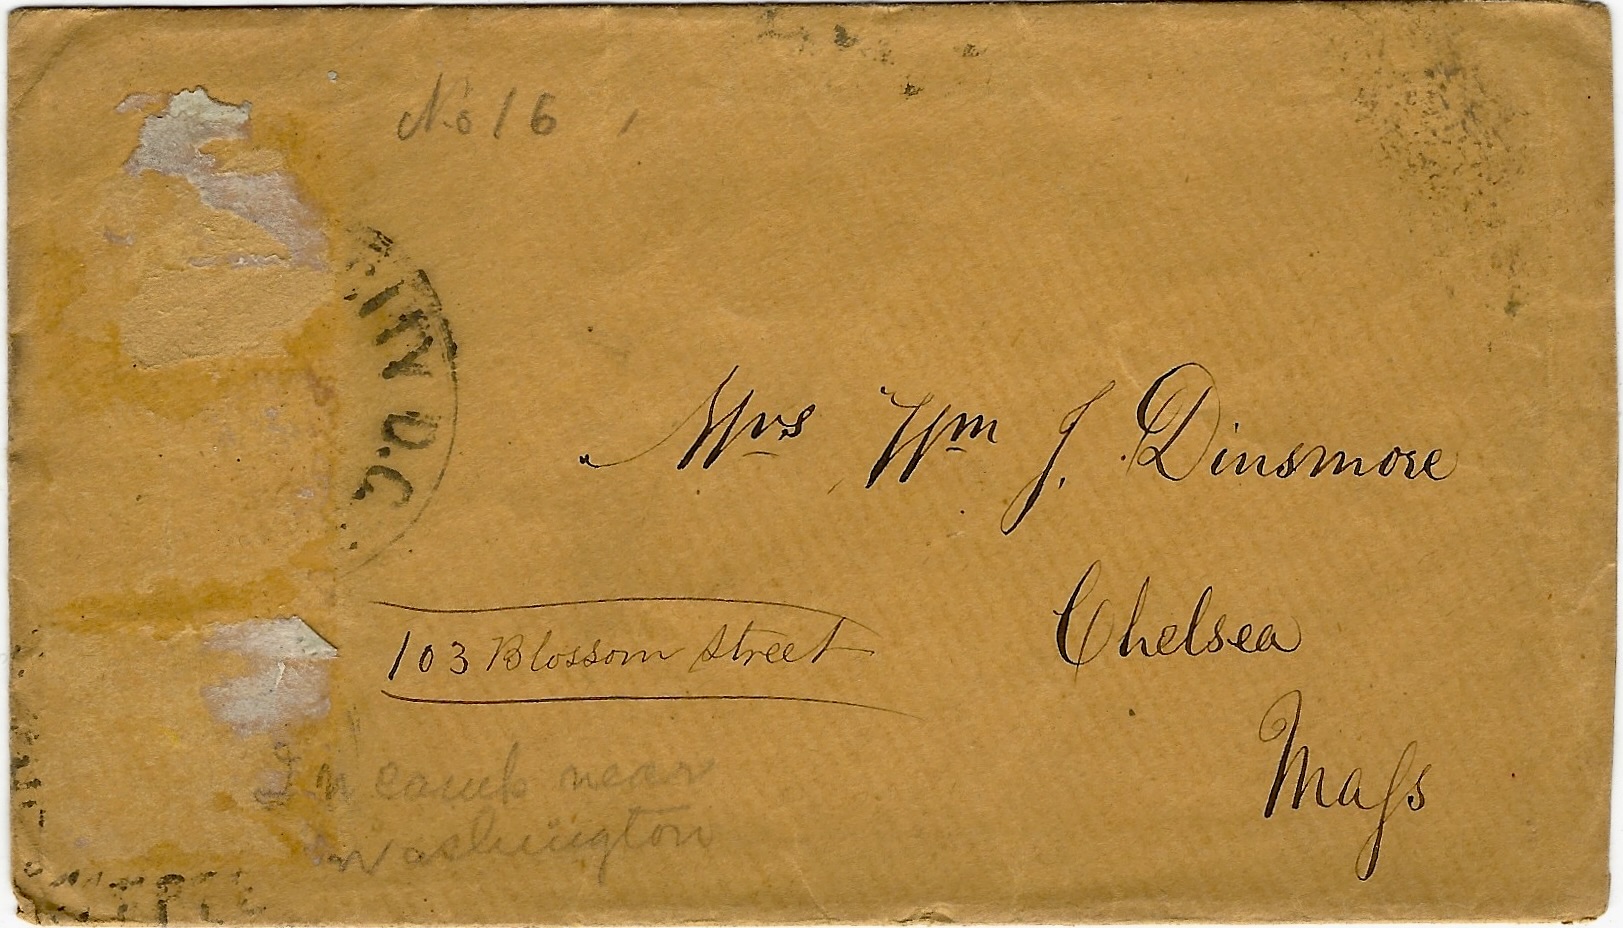 No 16
N D.C.
Mrs Wm J. Dinsmore
103 Blossom Street
Chelsea
Mass
In camp near
Washington